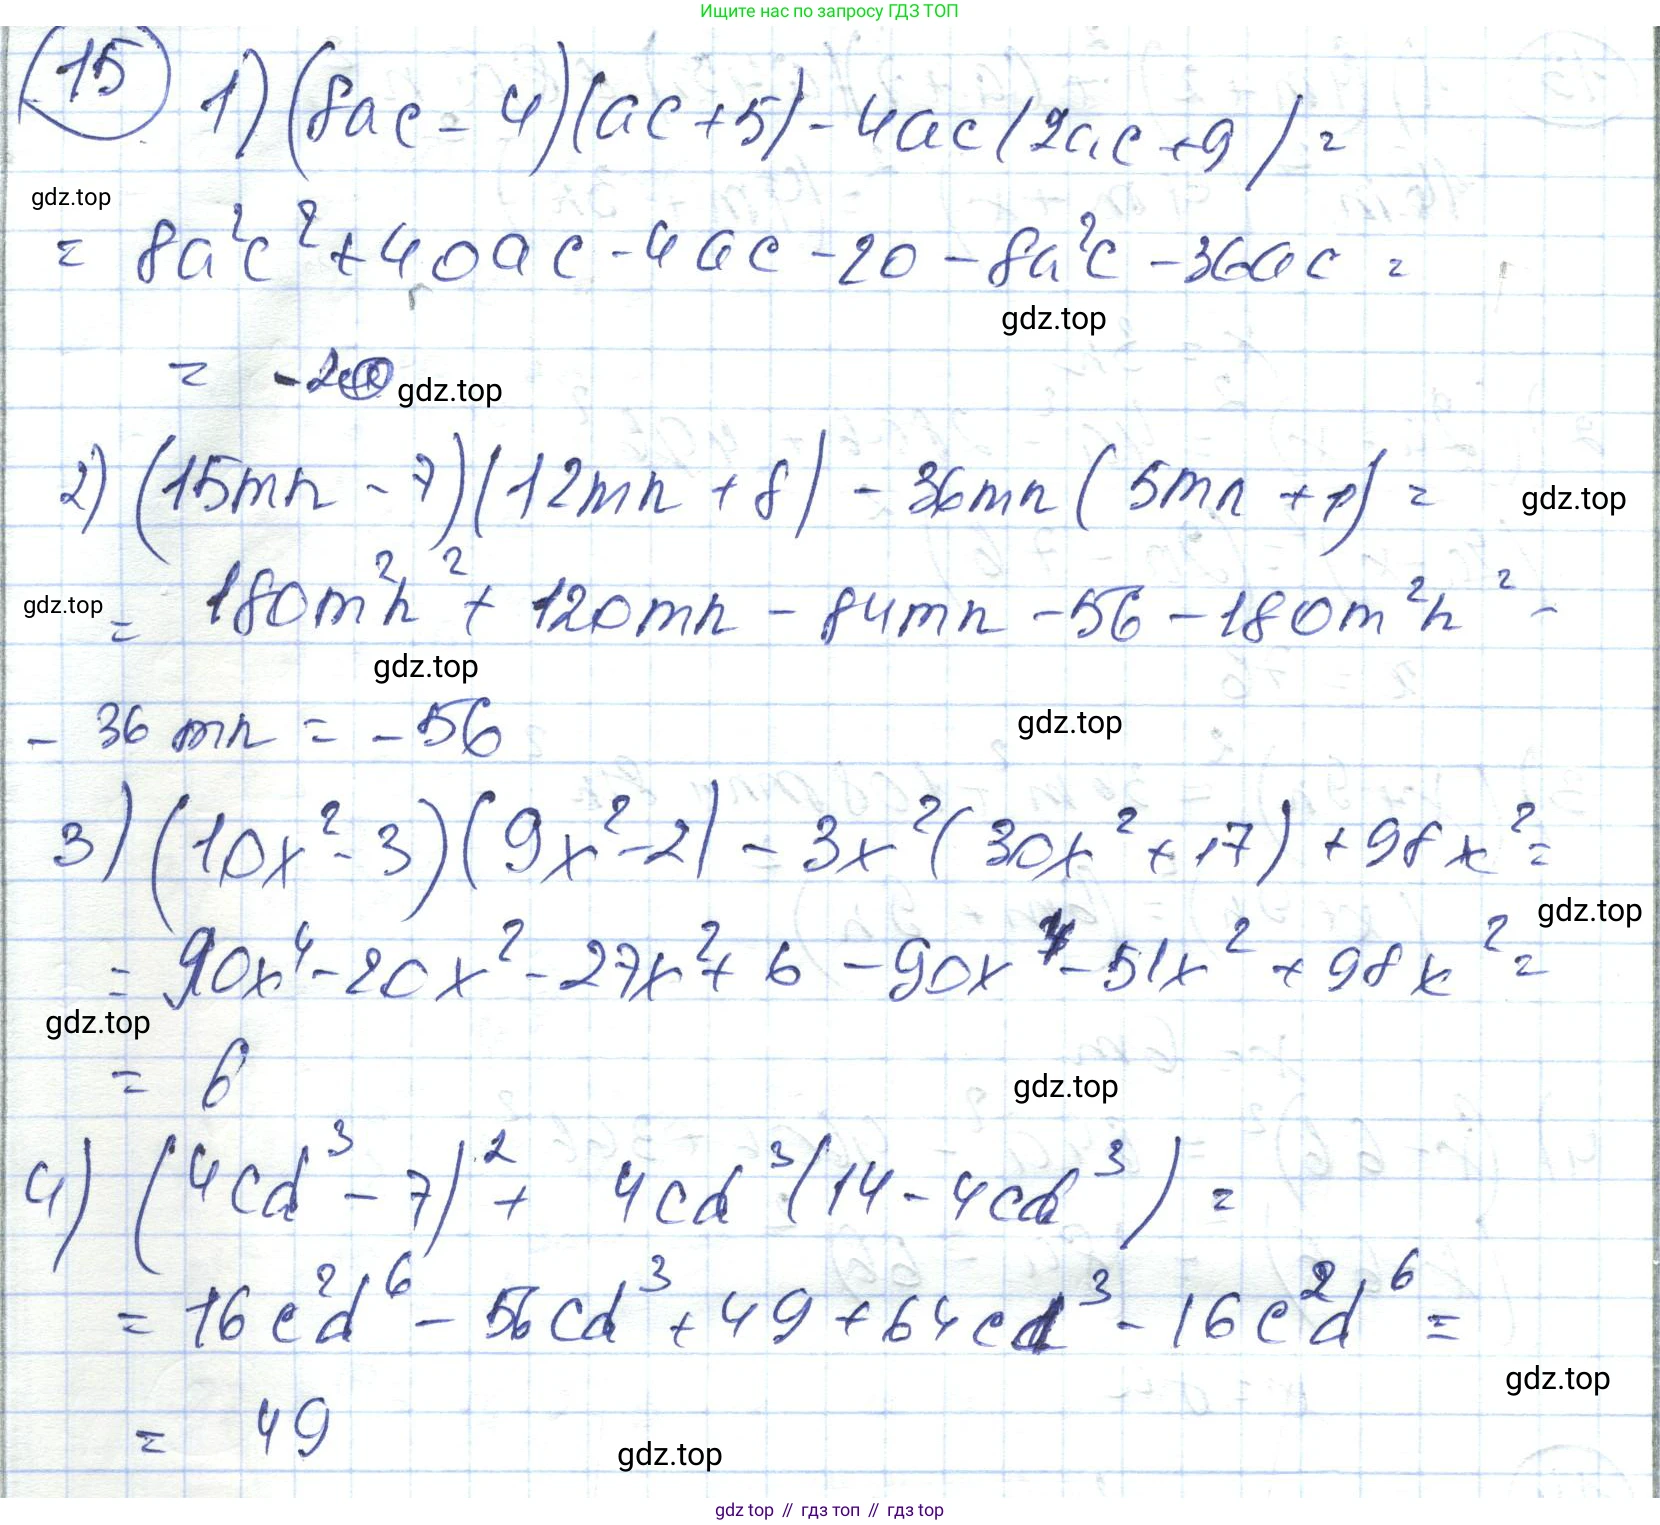 Ищите нас по запросу ГДЗ ТОП
15 1) (8ac - 4)(ac + 5) - 4ac(2ac + 9) =
gdz.top
= 8a²c² + 40ac - 4ac - 20 - 8a²c - 36ac =
gdz.top
= -20
gdz.top
2) (15mn - 7)(12mn + 8) - 36mn(5mn + 1) =
gdz.top
= 180m²n² + 120mn - 84mn - 56 - 180m²n² -
gdz.top
gdz.top
- 36mn = -56
gdz.top
3) (10x² - 3)(9x² - 2) - 3x²(30x² + 17) + 98x² =
gdz.top
= 90x⁴ - 20x² - 27x² + 6 - 90x⁴ - 51x² + 98x² =
gdz.top
= 6
gdz.top
4) (4cd³ - 7)² + 4cd³(14 - 4cd³) =
= 16c²d⁶ - 56cd³ + 49 + 64cd³ - 16c²d⁶ =
gdz.top
= 49
gdz.top
gdz top // гдз топ // гдз top